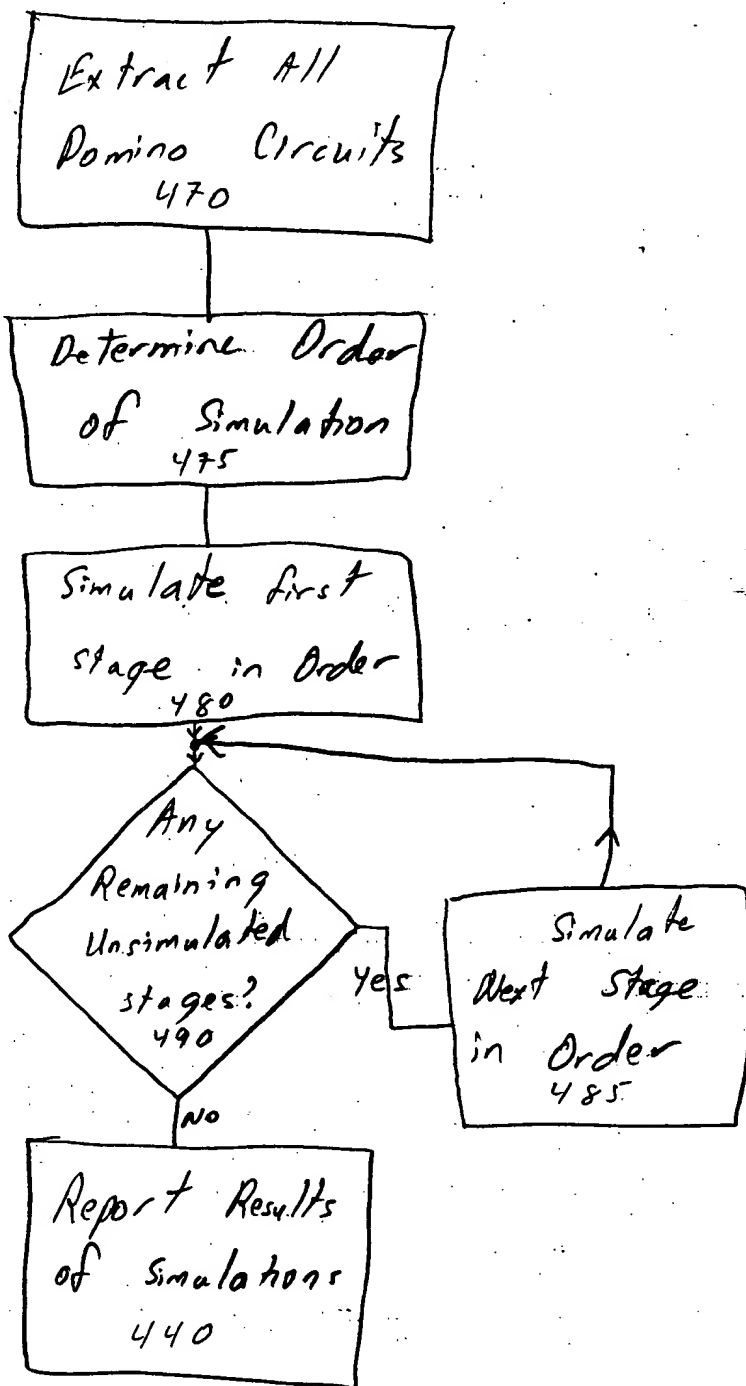 Extract All
Domino Circuits
470
Determine Order
of Simulation
475
Simulate first
stage in Order
480
Any
Remaining
Unsimulated
stages?
490
Yes
Simulate
Next Stage
in Order
485
NO
Report Results
of Simulations
440